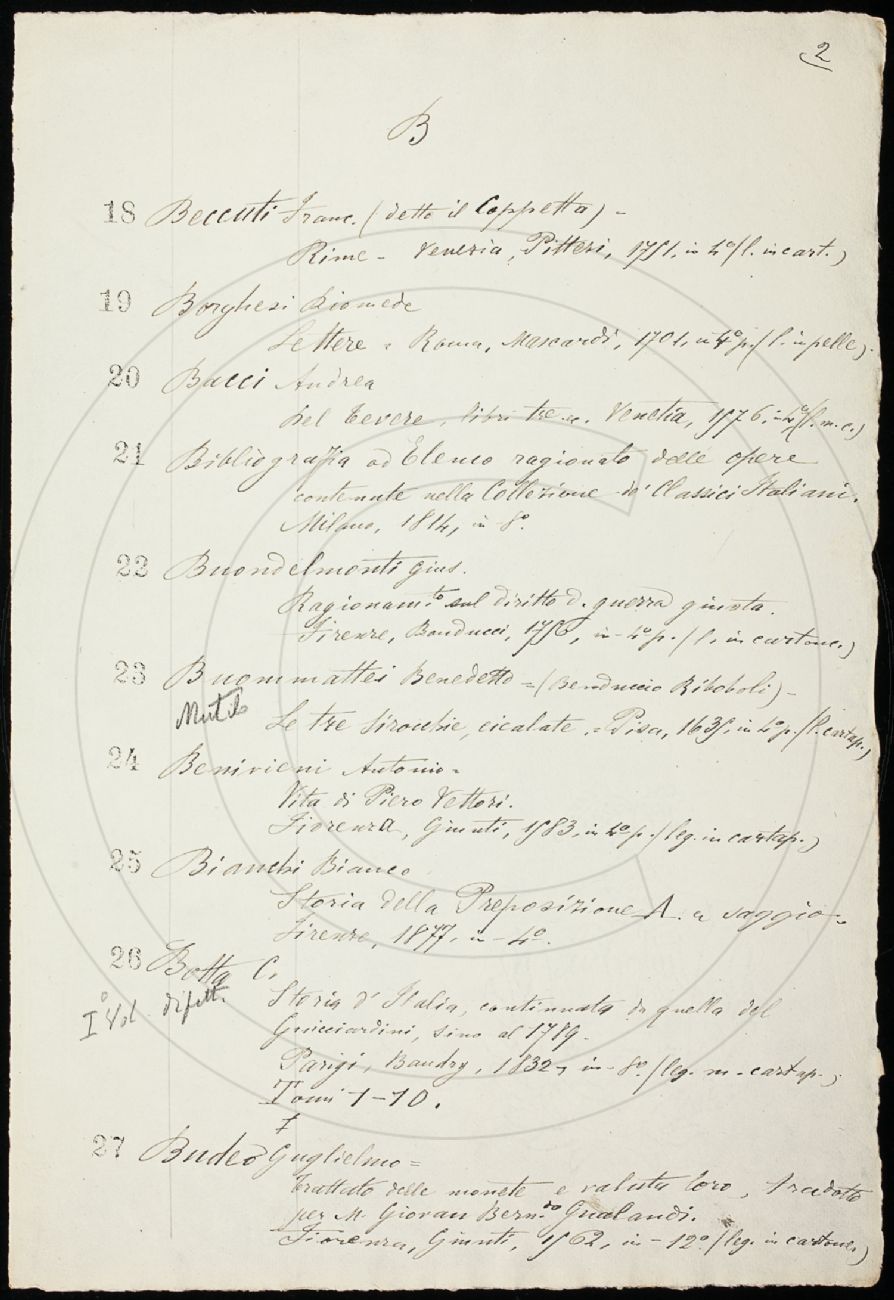 2
B
18 Beccuti Franc. (detto il Coppetta) -
Rime - Venezia, Pitteri, 1751, in 4º (l. in cart.)
19 Borghesi Diomede
Lettere = Roma, Mascardi, 1701, in 4º p. (l. in pelle).
20 Bacci Andrea
Del Tevere, libri tre. Venetia, 1576, in 4º (l. m. c.)
21 Bibliografia od Elenco ragionato delle opere
contenute nella Collezione de' Classici Italiani.
Milano, 1814, in 8º.
22 Buondelmonti Gius.
Ragionamto sul diritto d. guerra giusta.
Firenze, Bonducci, 1756, in-4º p. (l. in cartone)
23 Buommattei Benedetto = (Benduccio Riboboli) -
Mutilo
Le tre Sirocchie, cicalate. = Pisa, 1635, in 4º p. (l. cartap.)
24 Benivieni Antonio =
Vita di Piero Vettori.
Fiorenza, Giunti, 1583, in 4º p. (leg. in cartap.)
25 Bianchi Bianco
Storia della Preposizione A. a saggio =
Firenze, 1877, in - 4º.
26 Botta C.
Iº Vol difett.
Storia d' Italia, continuata da quella del
Guicciardini, sino al 1789.
Parigi, Baudry, 1832, in - 8º. (leg. m. cartap.)
Tomi 1-10.
27 Budeo Guglielmo =
Trattato delle monete e valuta loro, tradotto
per M. Giovan Bern.do Gualandi.
Fiorenza, Giunti, 1562, in - 12º. (leg. in cartone)